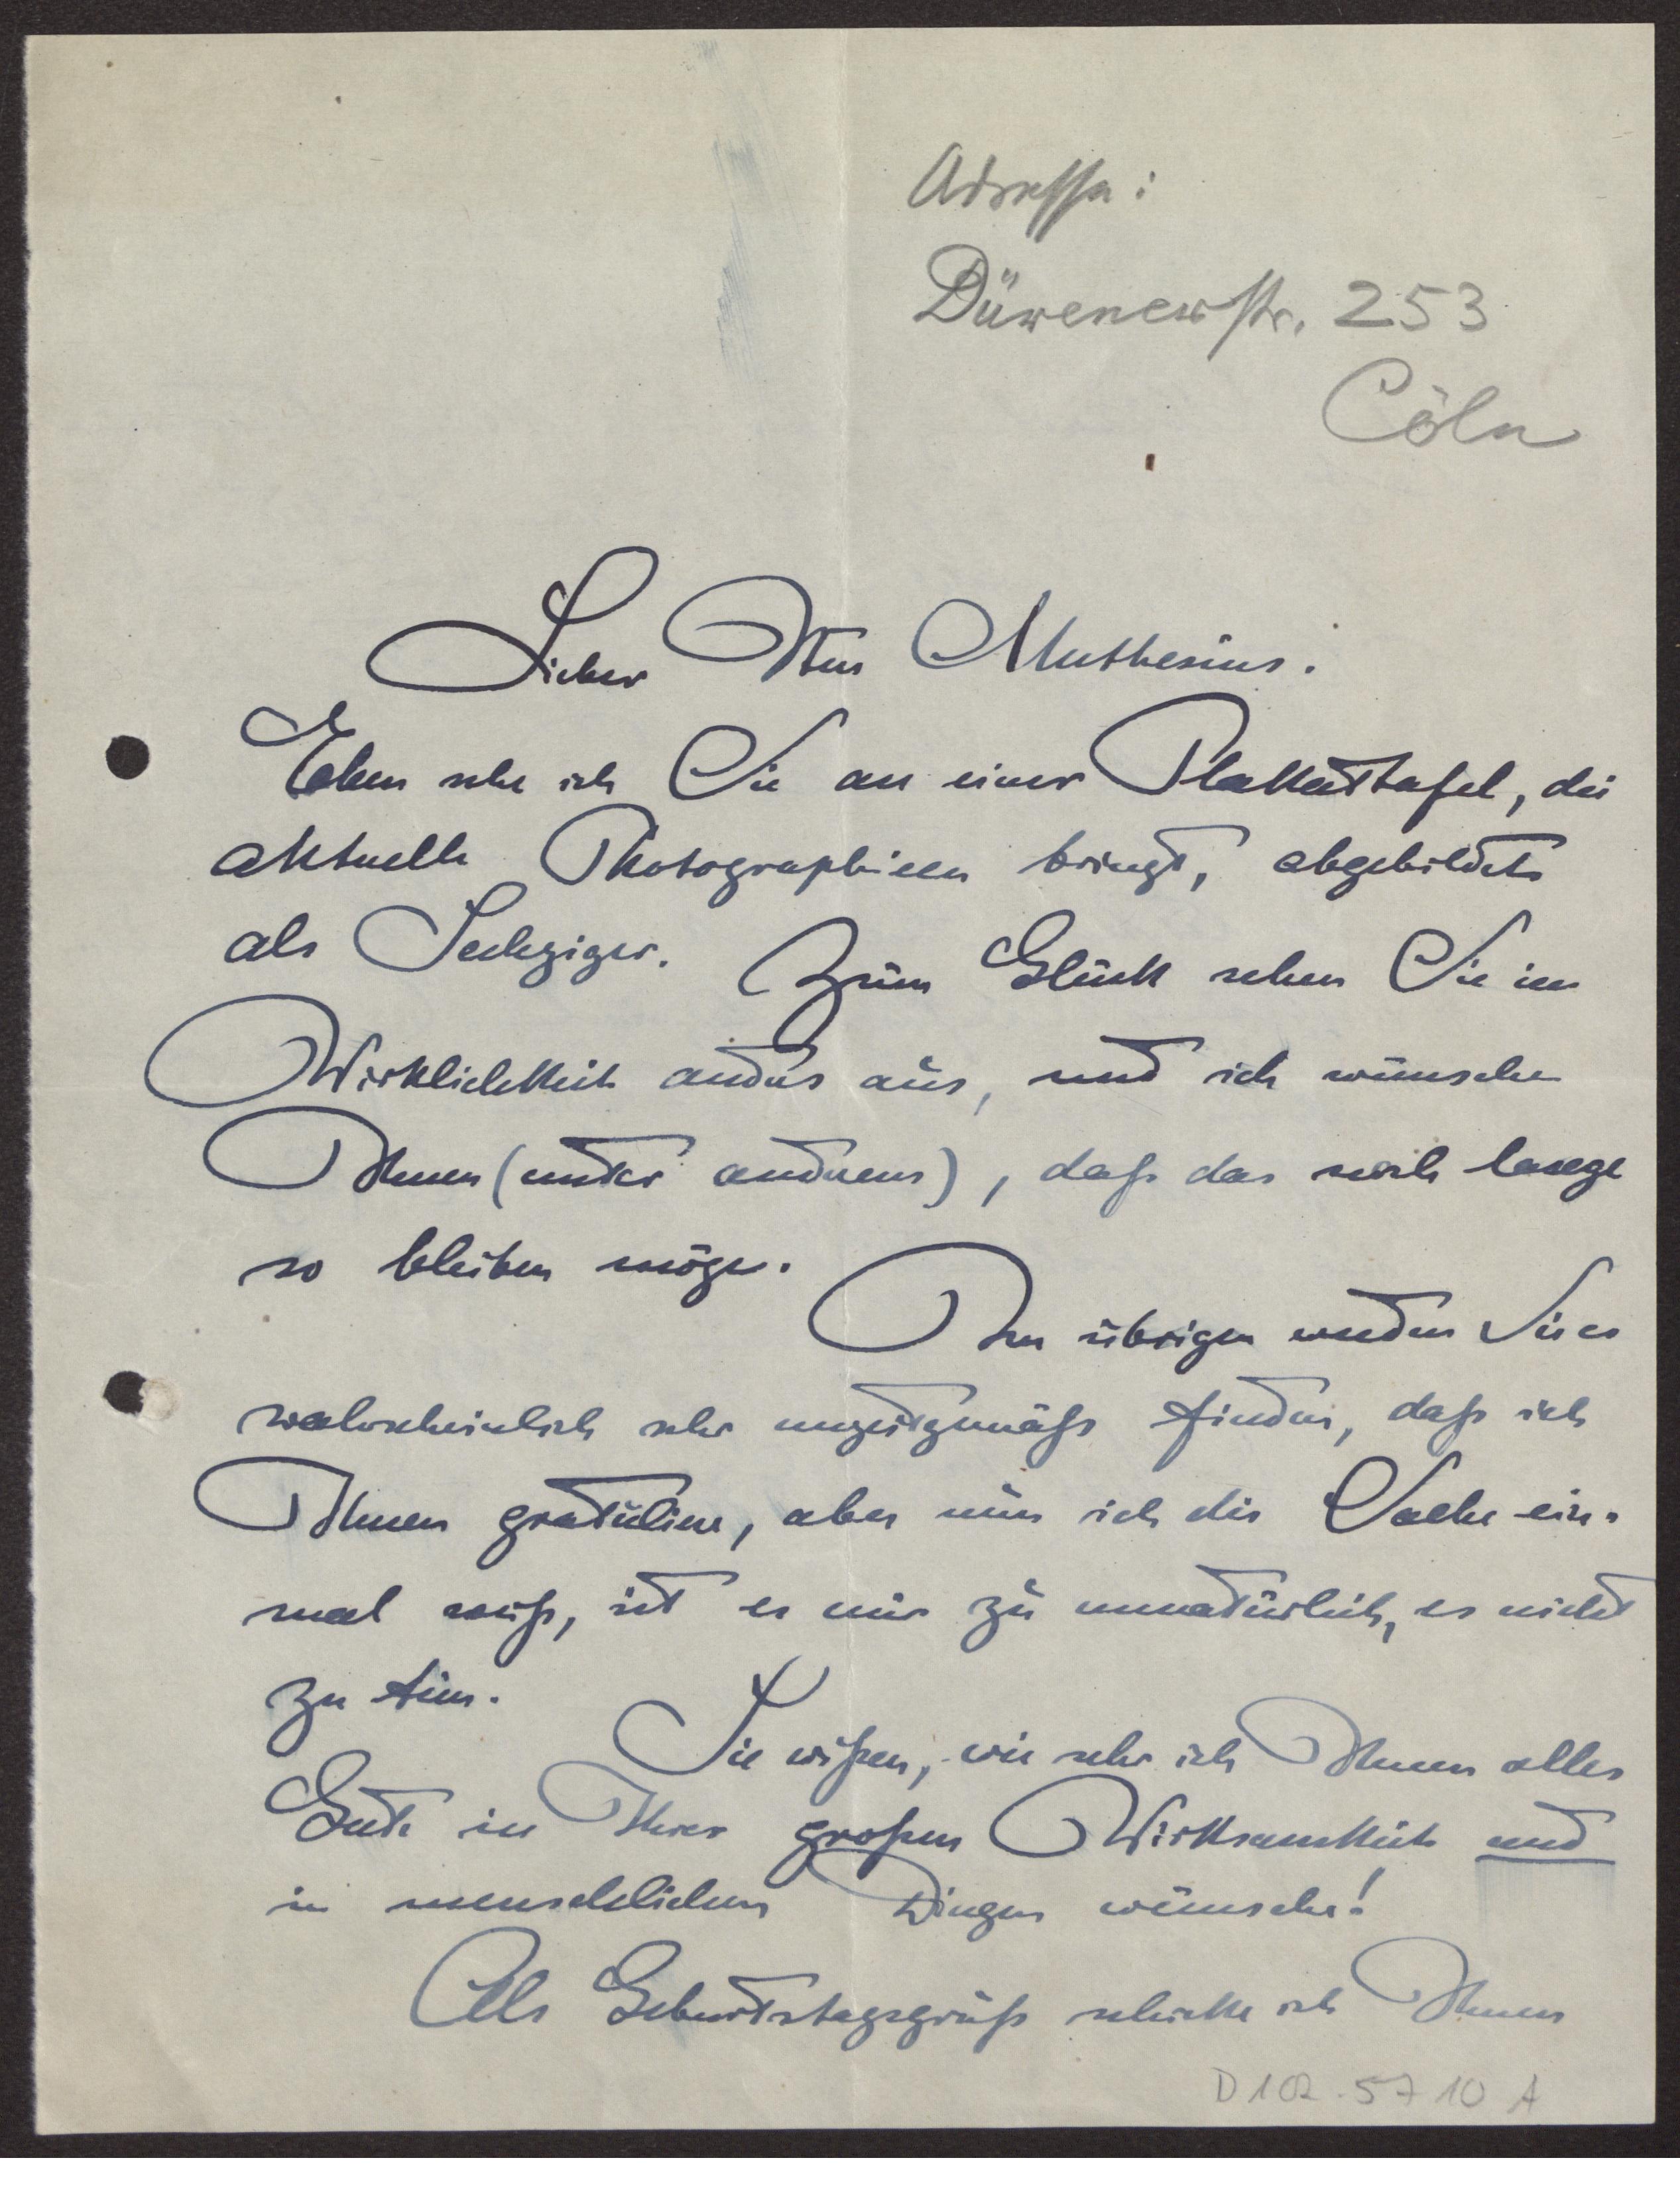 Adresse:
Dürenerstr. 253
Cöln
Lieber Herr Muthesius.
Eben sehe ich Sie an einer Plakattafel, die
aktuelle Photographieen bringt, abgebildet
als Sechziger. Zum Glück sehen Sie in
Wirklichkeit anders aus, und ich wünsche
Ihnen (unter anderem), daß das noch lange
so bleiben möge.
Im übrigen werden Sie es
wahrscheinlich sehr unzeitgemäß finden, daß ich
Ihnen gratuliere, aber nun ich die Sache ein-
mal weiß, ist es mir zu unnatürlich, es nicht
zu tun.
Sie wißen, wie sehr ich Ihnen alles
Gute in Ihrer großen Wirksamkeit und
in menschlichen Dingen wünsche!
Als Geburtstagsgruß schicke ich Ihnen
D102-5710 A